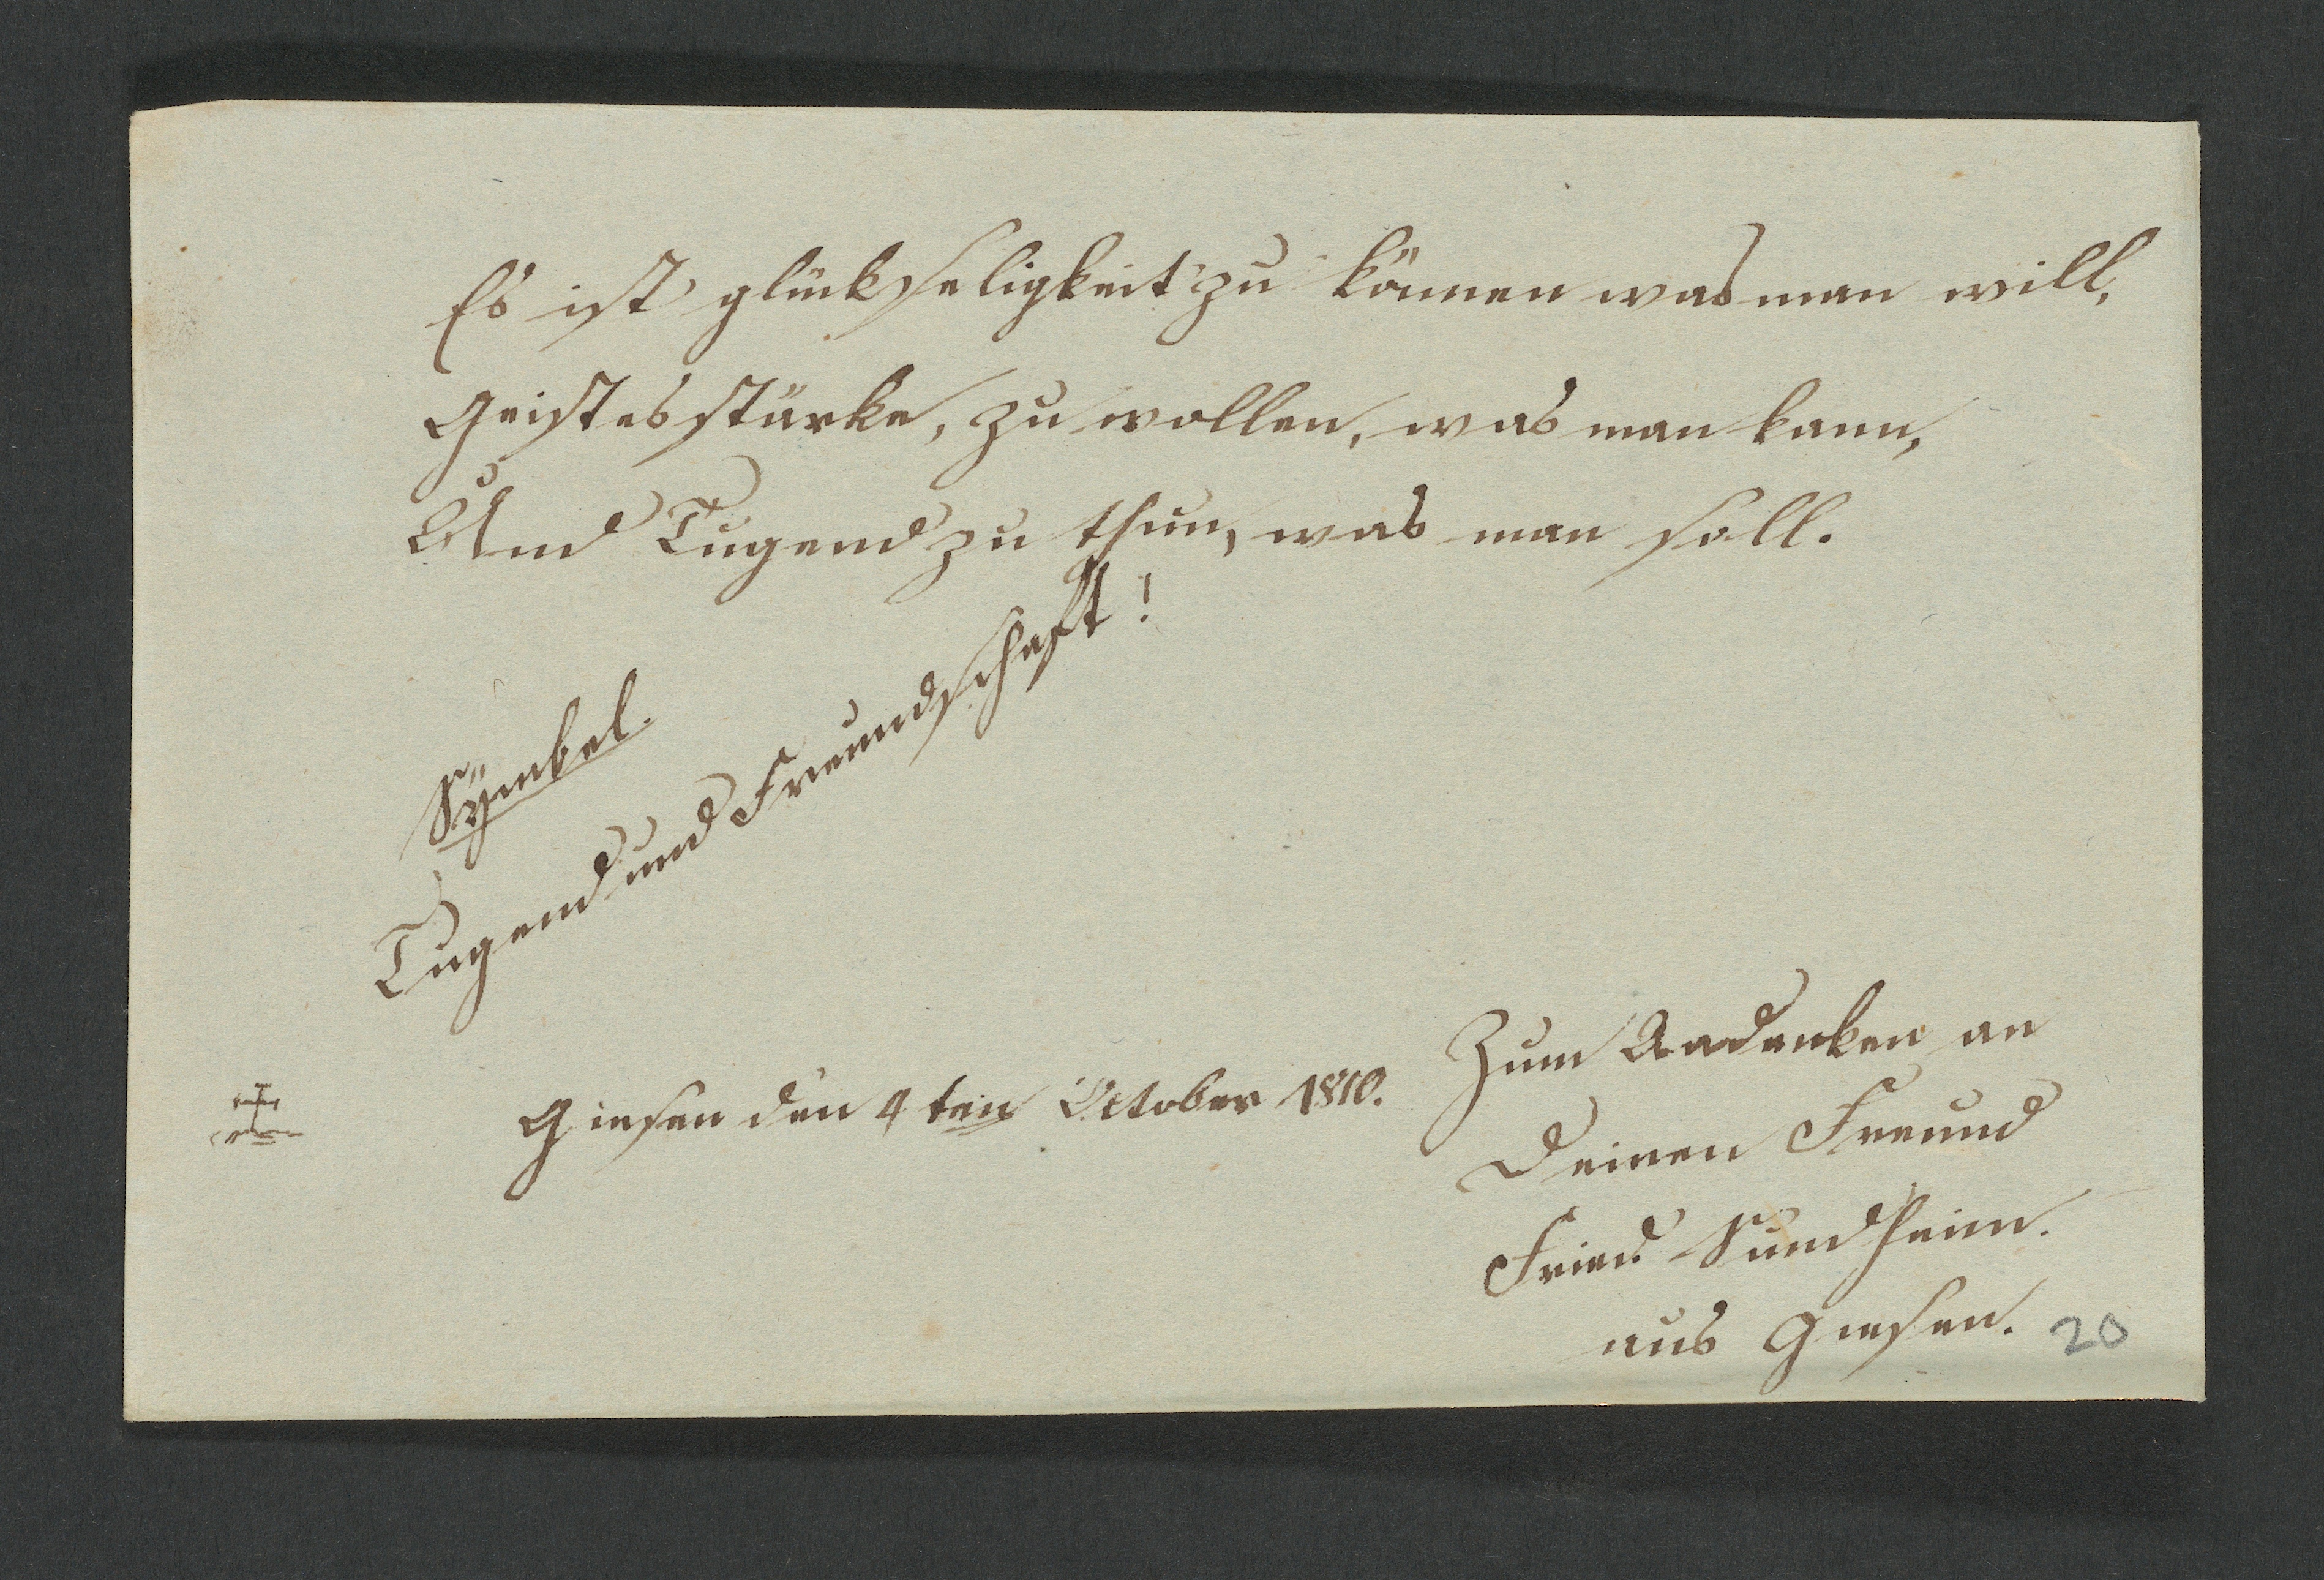 Es ist glückseligkeit zu können was man will,
Geistesstärke, zu wollen, was man kann,
Und Tugend zu thun, was man soll.
Sÿmbol.
Tugend und Freundschaft!
Giesen den 4 ten October 1810.
Zum Andenken an
Deinen Freund
Fried. Sundheim.
aus Giesen.
20